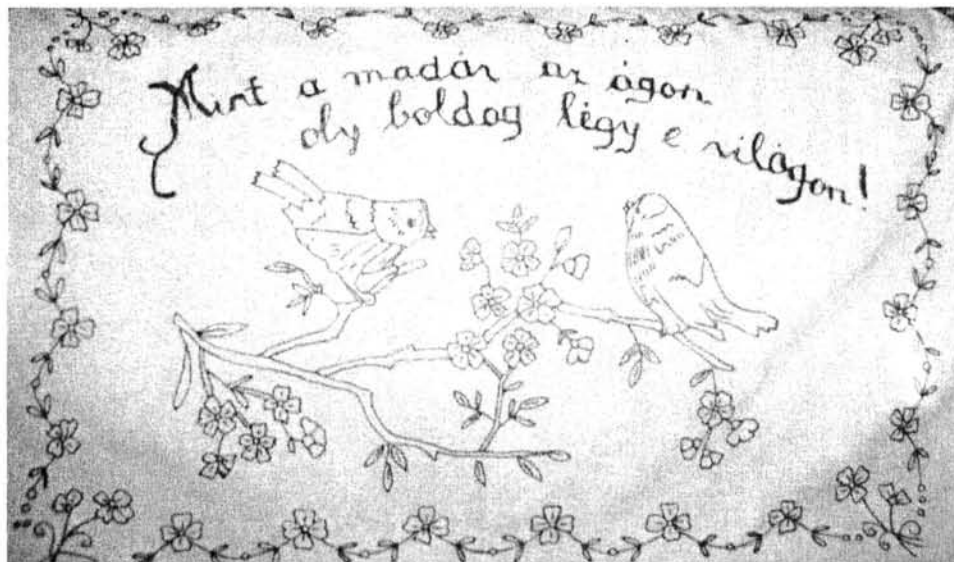 Mint a madár az ágon
oly boldog légy e világon!